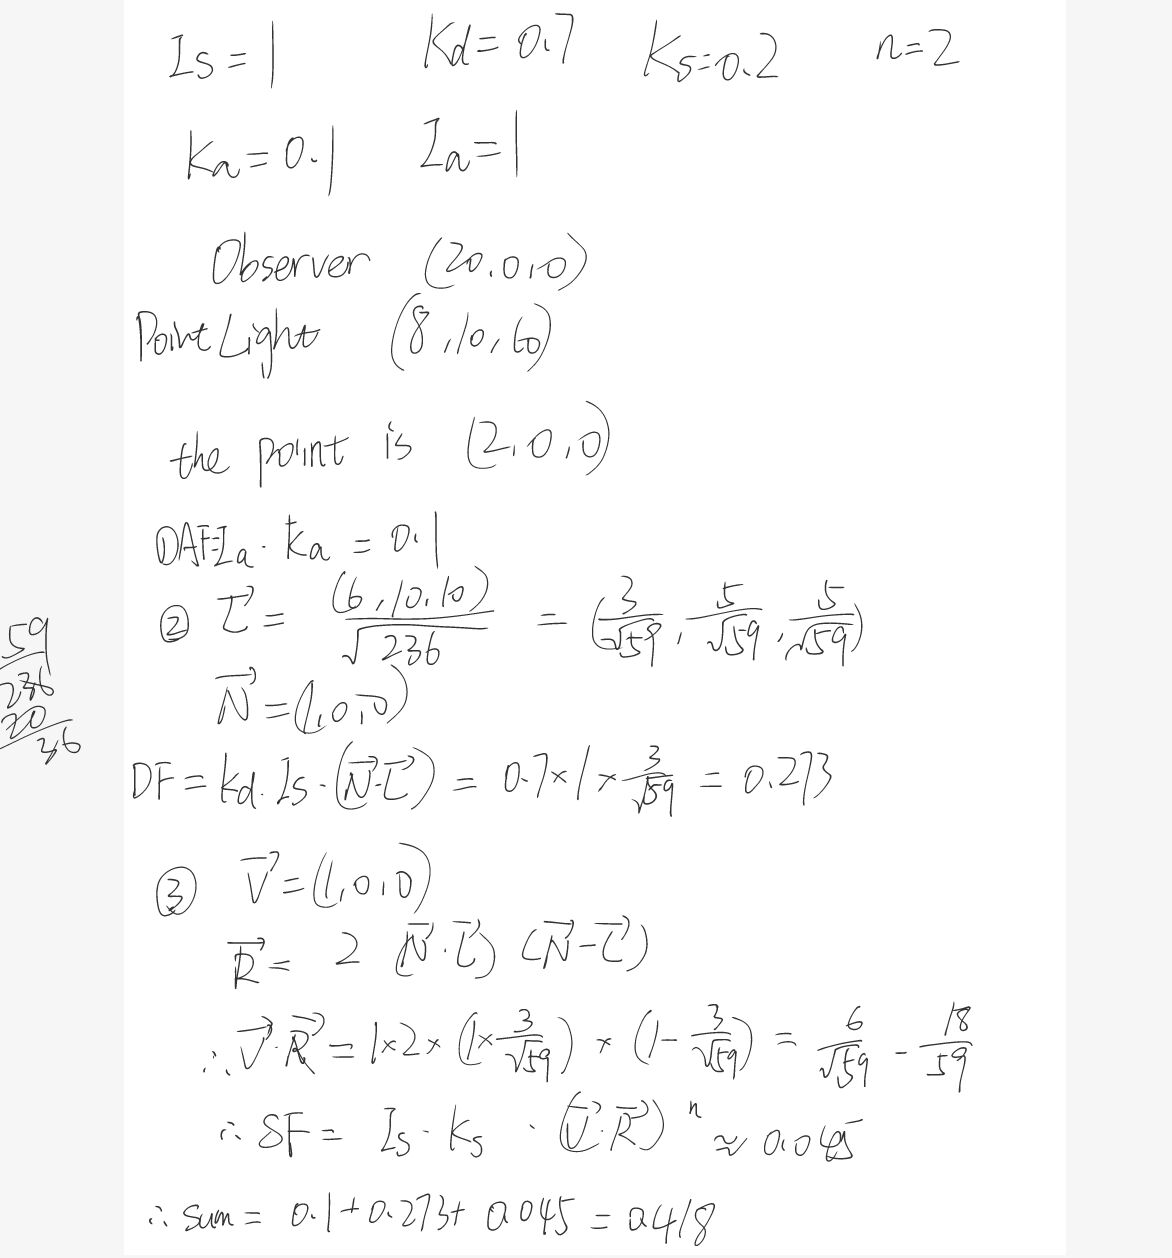 Is = 1 Kd = 0.7 Ks=0.2 n=2
Ka = 0.1 Ia = 1
Observer (20.0,0)
Point Light (8,10,10)
the point is (2,0,0)
①AF=Ia · ka = 0.1
② L⃗ = (6,10.10) / √236 = (3/√59, 5/√59, 5/√59)
N⃗ = (1,0,0)
59
236
20
36
DF = kd. Is · (N⃗·L⃗) = 0.7 × 1 × 3/√59 = 0.273
③ V⃗ = (1,0,0)
R⃗ = 2 (N⃗·L⃗) (N⃗-L⃗)
∴ V⃗·R⃗ = 1×2× (1×3/√59) × (1-3/√59) = 6/√59 - 18/59
∴ SF = Is · ks · (V⃗·R⃗)ⁿ ≈ 0.045
∴ sum = 0.1+0.273+ 0.045 = 0.418